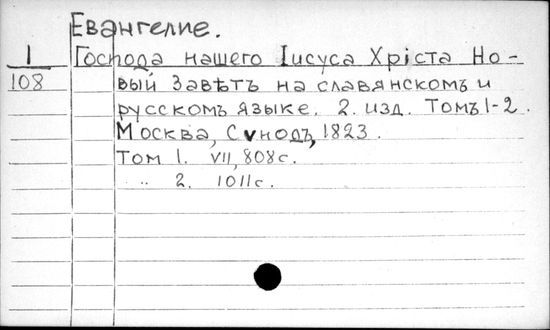 Евангелие.
1
Господа нашего Іисуса Хріста Но-
108
вый Завѣтъ на славянскомъ и
русскомъ языке. 2. изд. Томъ 1-2.
Москва, Сѵнодъ, 1823.
Том 1. VII, 808 с.
" 2. 1011 с.